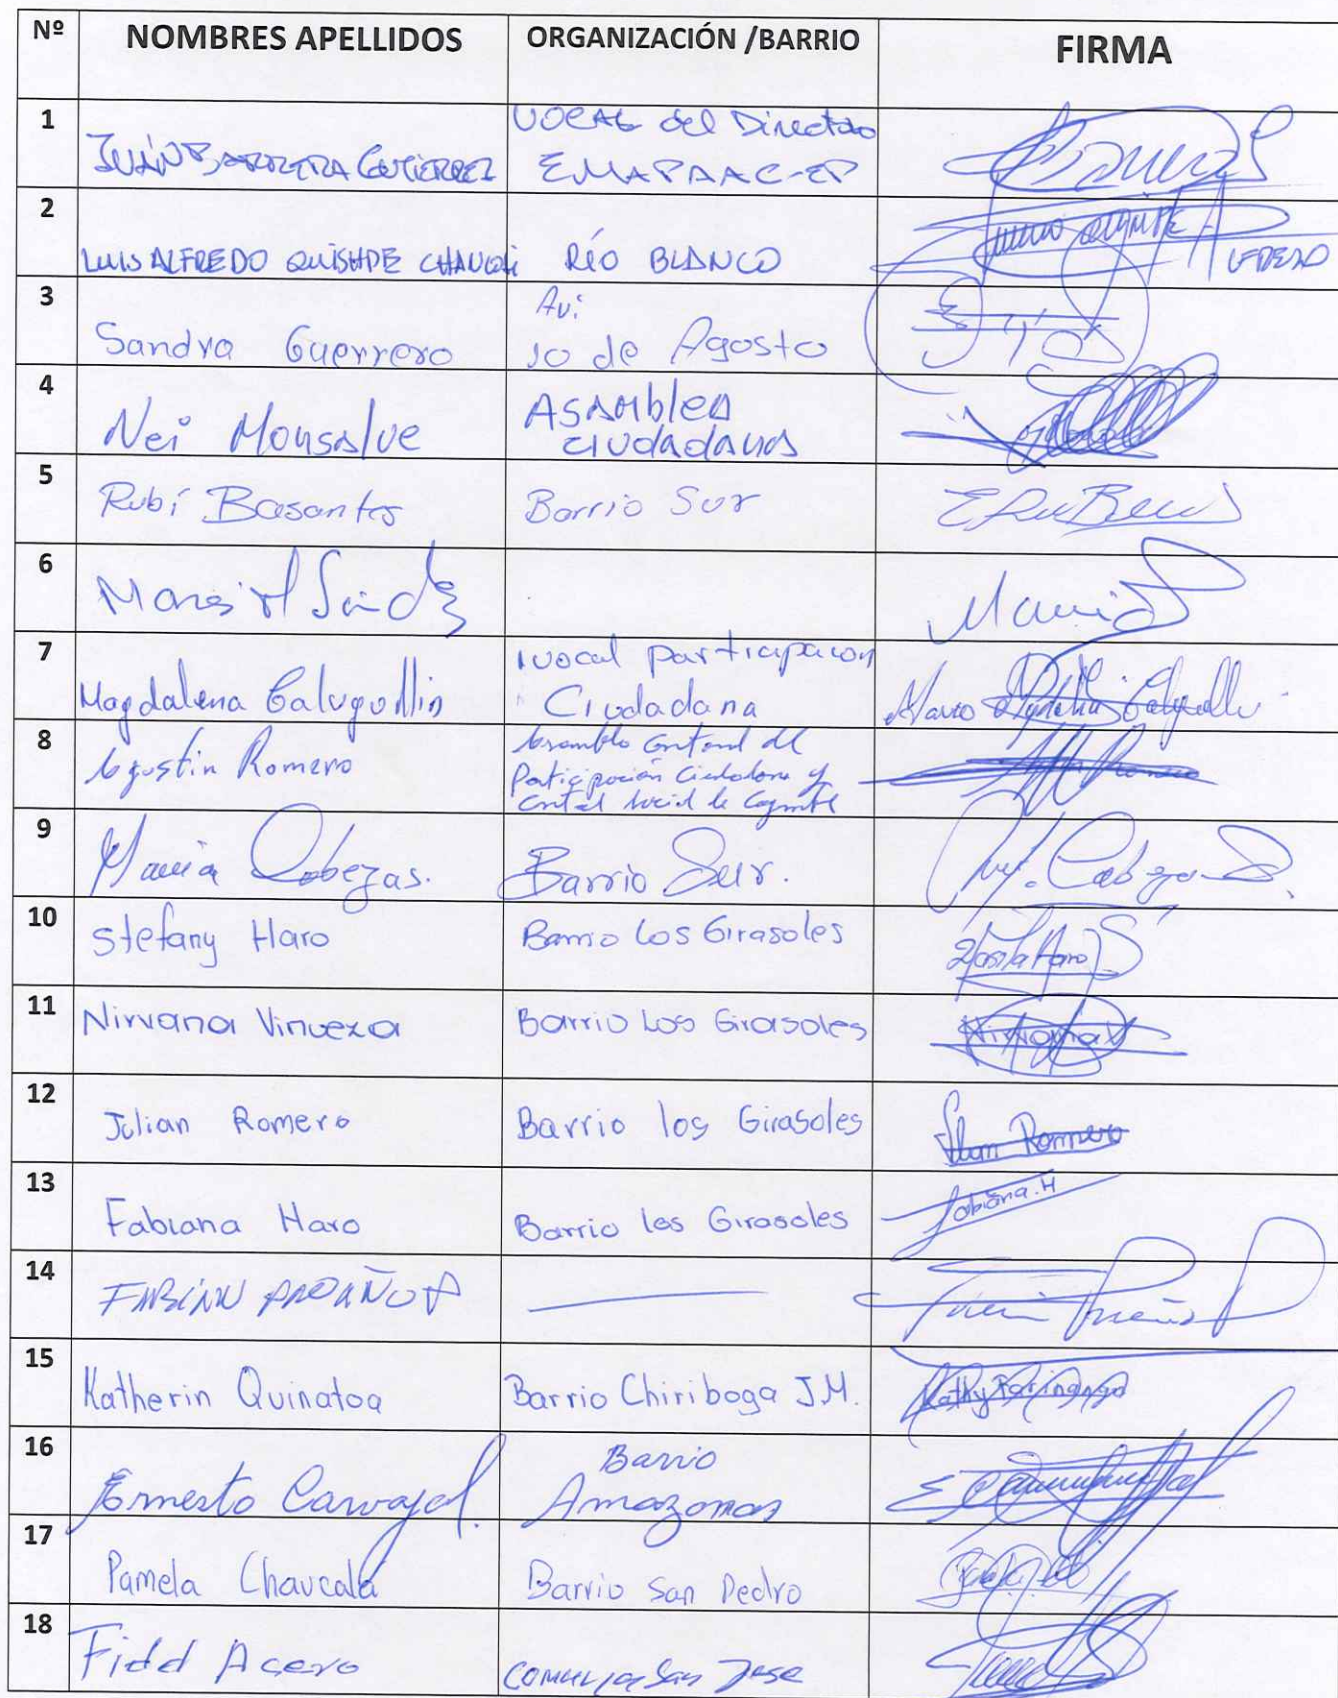 Nº NOMBRES APELLIDOS ORGANIZACIÓN /BARRIO FIRMA
1 JUAN BARRERA GUTIERREZ VOCAL del Directorio
EMAPAAC-EP
2 LUIS ALFREDO QUISHPE RÍO BLANCO
ALFREDO
3 Sandra Guerrero Av:
10 de Agosto
4 Nei Monsalve ASAMblea
ciudadana
5 Rubí Basantes Barrio Sur
6
7 Magdalena Caluguillin vocal participacion
Ciudadana
8 Agustin Romero Asamblea Cantonal de
Participación Ciudadana y
Control Social de Cayambe
9 Maria Cabezas. Barrio Sur.
10 Stefany Haro Barrio Los Girasoles
11 Nirvana Vinueza Barrio Los Girasoles Nirvana V
12 Julian Romero Barrio los Girasoles Romero
13 Fabiana Haro Barrio los Girasoles Fabiana.H
14 FABIÁN
15 Katherin Quinatoa Barrio Chiriboga J.M. Kathy Farinango
16 Ernesto Carvajal. Barrio
Amazonas
17 Pamela Chaucala Barrio San Pedro
18 Fidel Acero San Jose